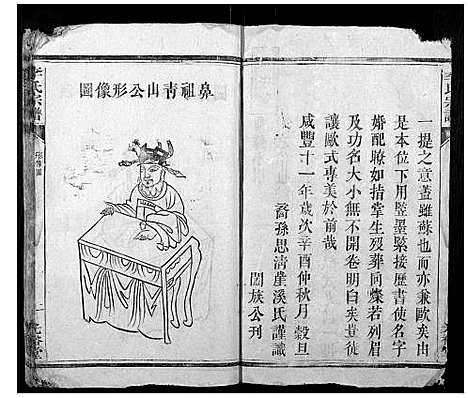 一提之意蓋雖蘇也而亦兼歐矣由
是本位下用豎墨緊接歷書使名字
婚配瞭如指掌生歿葬同燦若列眉
及功名大小無不開卷明白矣豈徒
讓歐式專美於前哉
咸豐十一年歲次辛酉仲秋月穀旦
裔孫思清崖溪氏謹識
闔族公刊
鼻祖青山公形像圖
李氏宗譜
形像圖